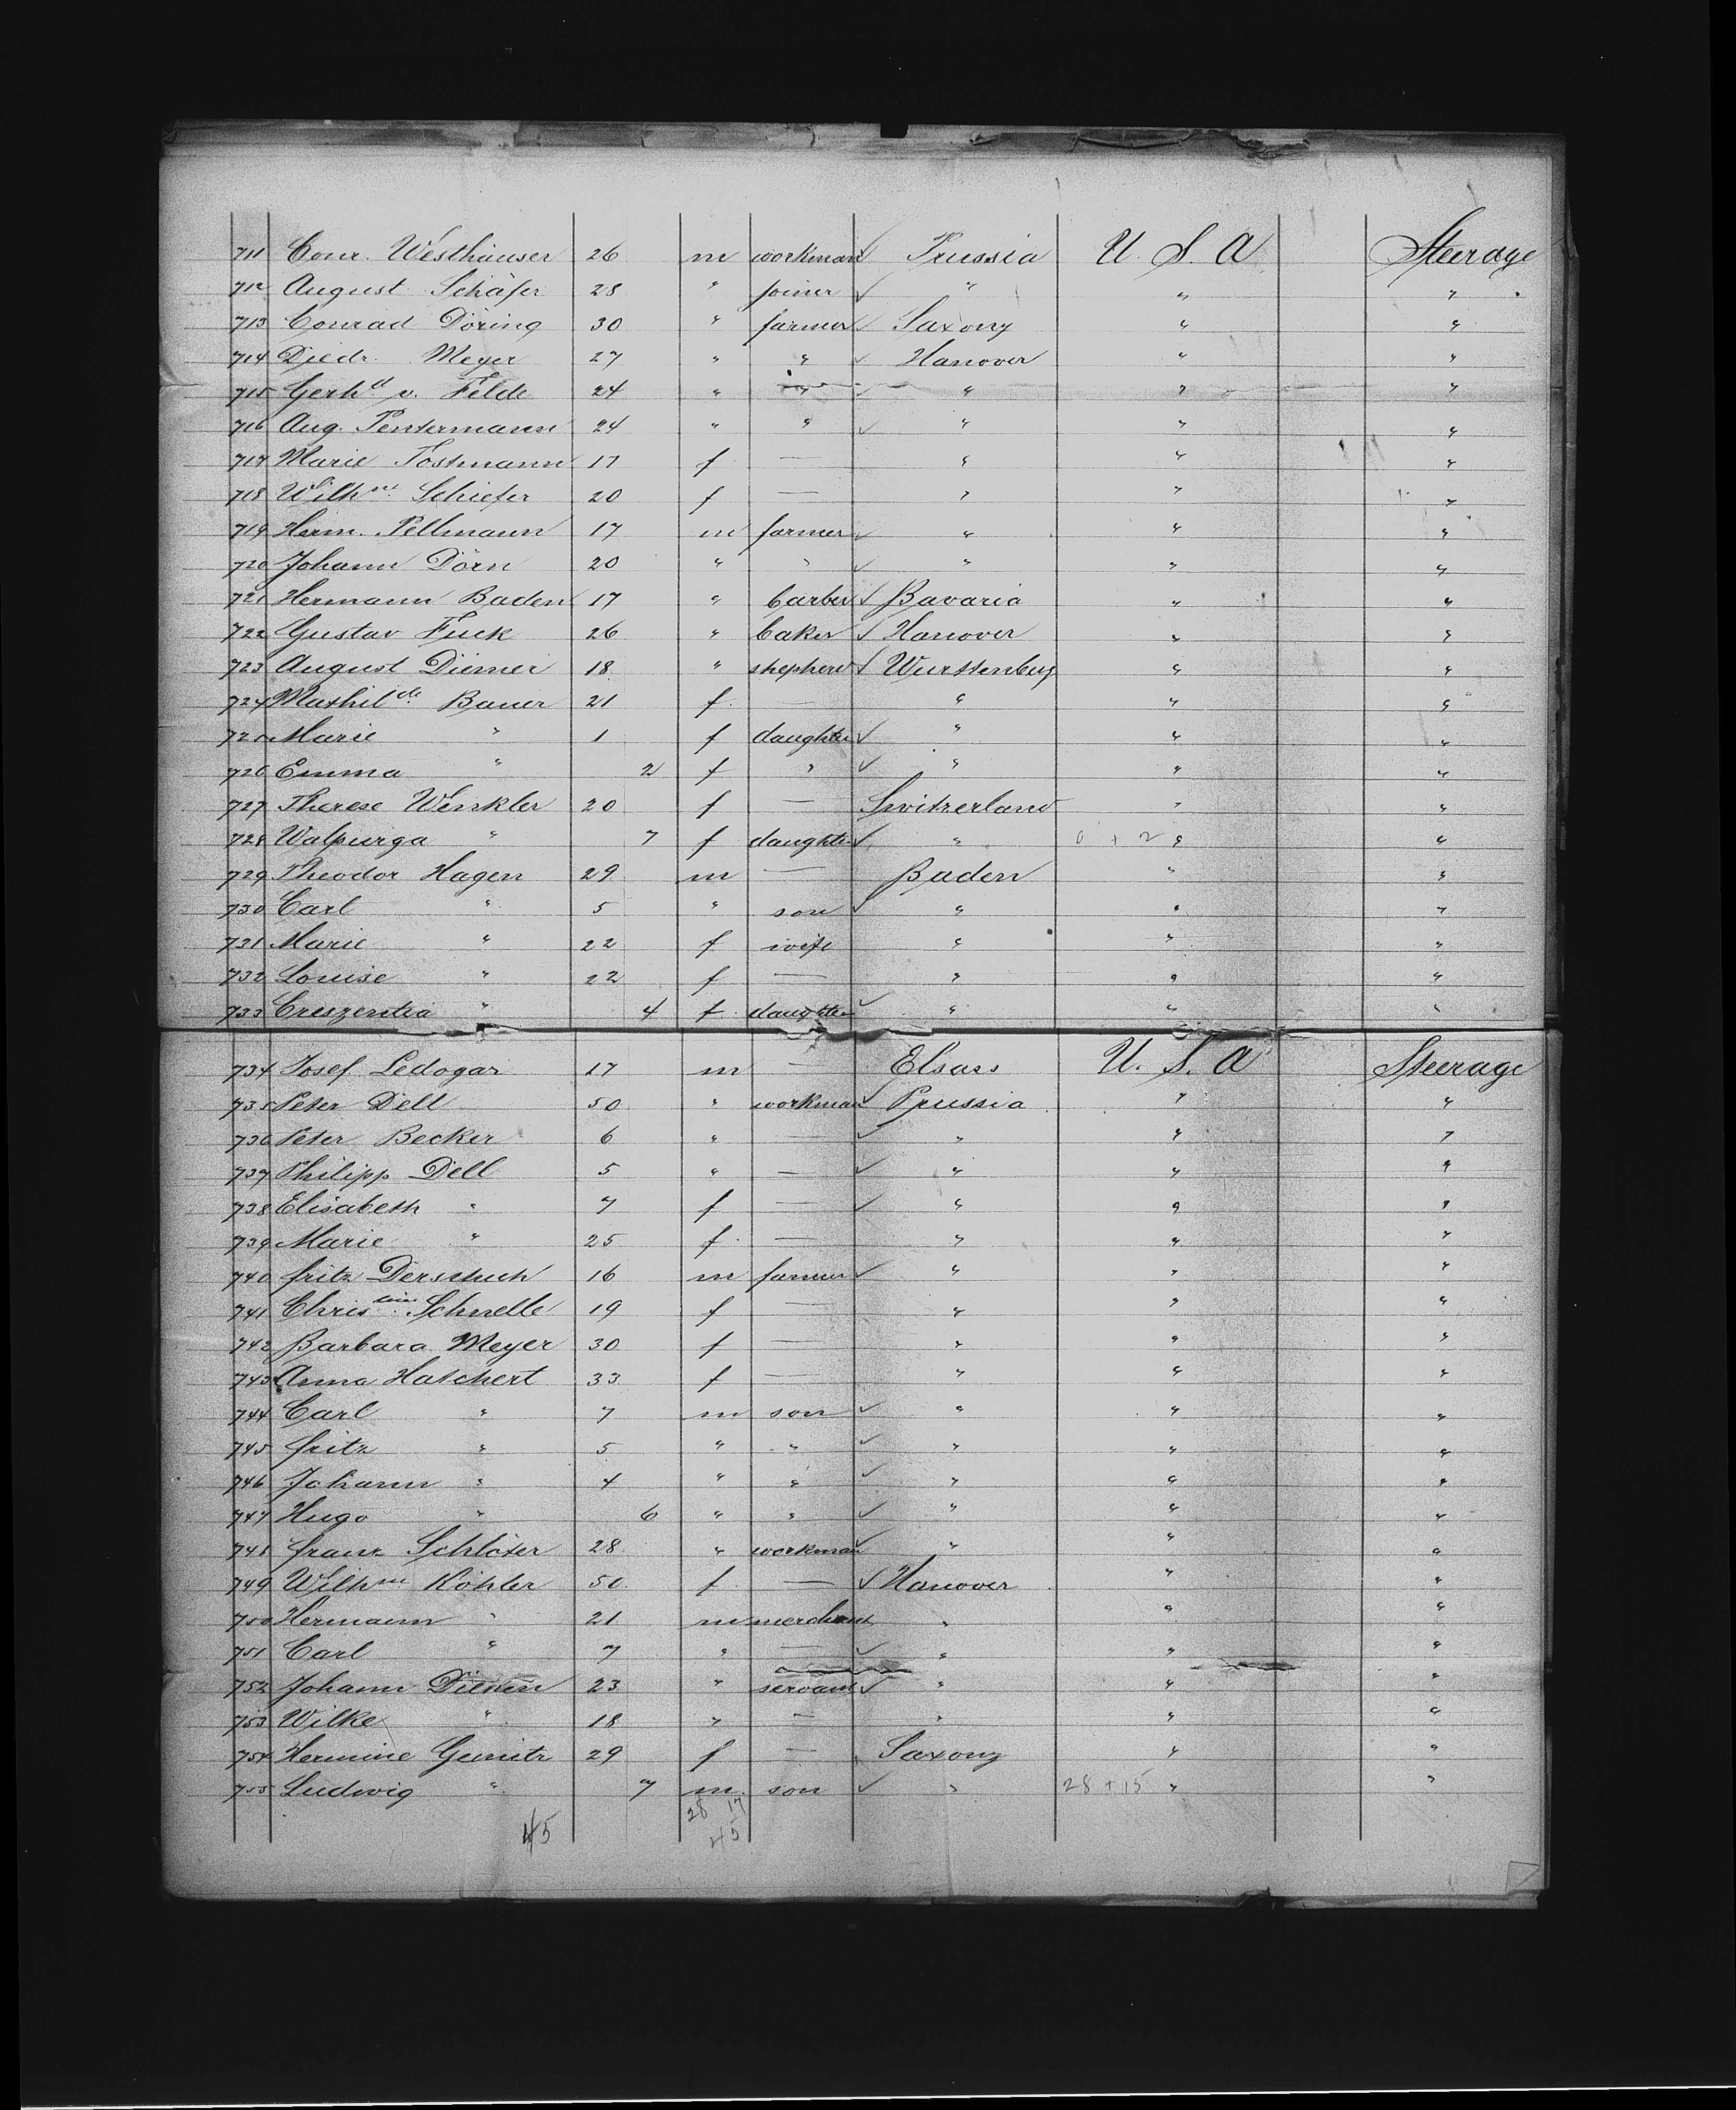 711 Conr. Westhäuser 26 m workman ✓ Prussia U. S. A Steerage
712 August Schäfer 28 " joiner ✓ " " "
713 Conrad Döring 30 " farmer ✓ Saxony " "
714 Diedr. Meyer 27 " " ✓ Hanover " "
715 Gerhd v. Felde 24 " " ✓ " " "
716 Aug. Pentermann 24 " " ✓ " " "
717 Marie Tostmann 17 f — " " "
718 Wilhne Schiefer 20 f — " " "
719 Herm. Pellmann 17 m farmer ✓ " " "
720 Johann Dörn 20 " " ✓ " " "
721 Hermann Baden 17 " barber ✓ Bavaria " "
722 Gustav 26 " baker ✓ Hanover " "
723 August 18 " shepherd ✓ Wurttenburg " "
724 Mathilde Bauer 21 f. — " " "
725 Marie " 1 f daughter ✓ " " "
726 Emma " 2 f " ✓ " " "
727 Therese Winkler 20 f — Switzerland " "
728 Walpurga " 7 f daughter ✓ " 0 + 2 " "
729 Theodor Hagen 29 m — Baden " "
730 Carl " 5 " son ✓ " " "
731 Marie " 22 f wife " " "
732 Louise " 22 f — " " "
733 Creszentia " 4 f daughter ✓ " " "
734 Josef Ledogar 17 m — Elsass U. S. A Steerage
735 Peter Dell 50 " workman ✓ Prussia " "
736 Peter Becker 6 " — ✓ " " "
737 Philipp Dell 5 " — ✓ " " "
738 Elisabeth " 7 f — ✓ " " "
739 Marie " 25 f — " " "
740 fritz 16 m farmer ✓ " " "
741 Christine Schnelle 19 f — " " "
742 Barbara Meyer 30 f — " " "
743 Anna Hatchert 33 f — " " "
744 Carl " 7 m son ✓ " " "
745 fritz " 5 " " ✓ " " "
746 Johann " 4 " " ✓ " " "
747 Hugo " 6 " " ✓ " " "
748 franz Schlöter 28 " workman ✓ " " "
749 Wilhne Köhler 50 f — ✓ Hanover " "
750 Hermann " 21 m merchant " " "
751 Carl " 7 " — ✓ " " "
752 Johann 23 " servant ✓ " " "
753 Wilke " 18 " — " " "
754 Hermine 29 f — Saxony " "
755 Ludwig " 7 m son ✓ " 28 + 15 " "
28 17
45 45